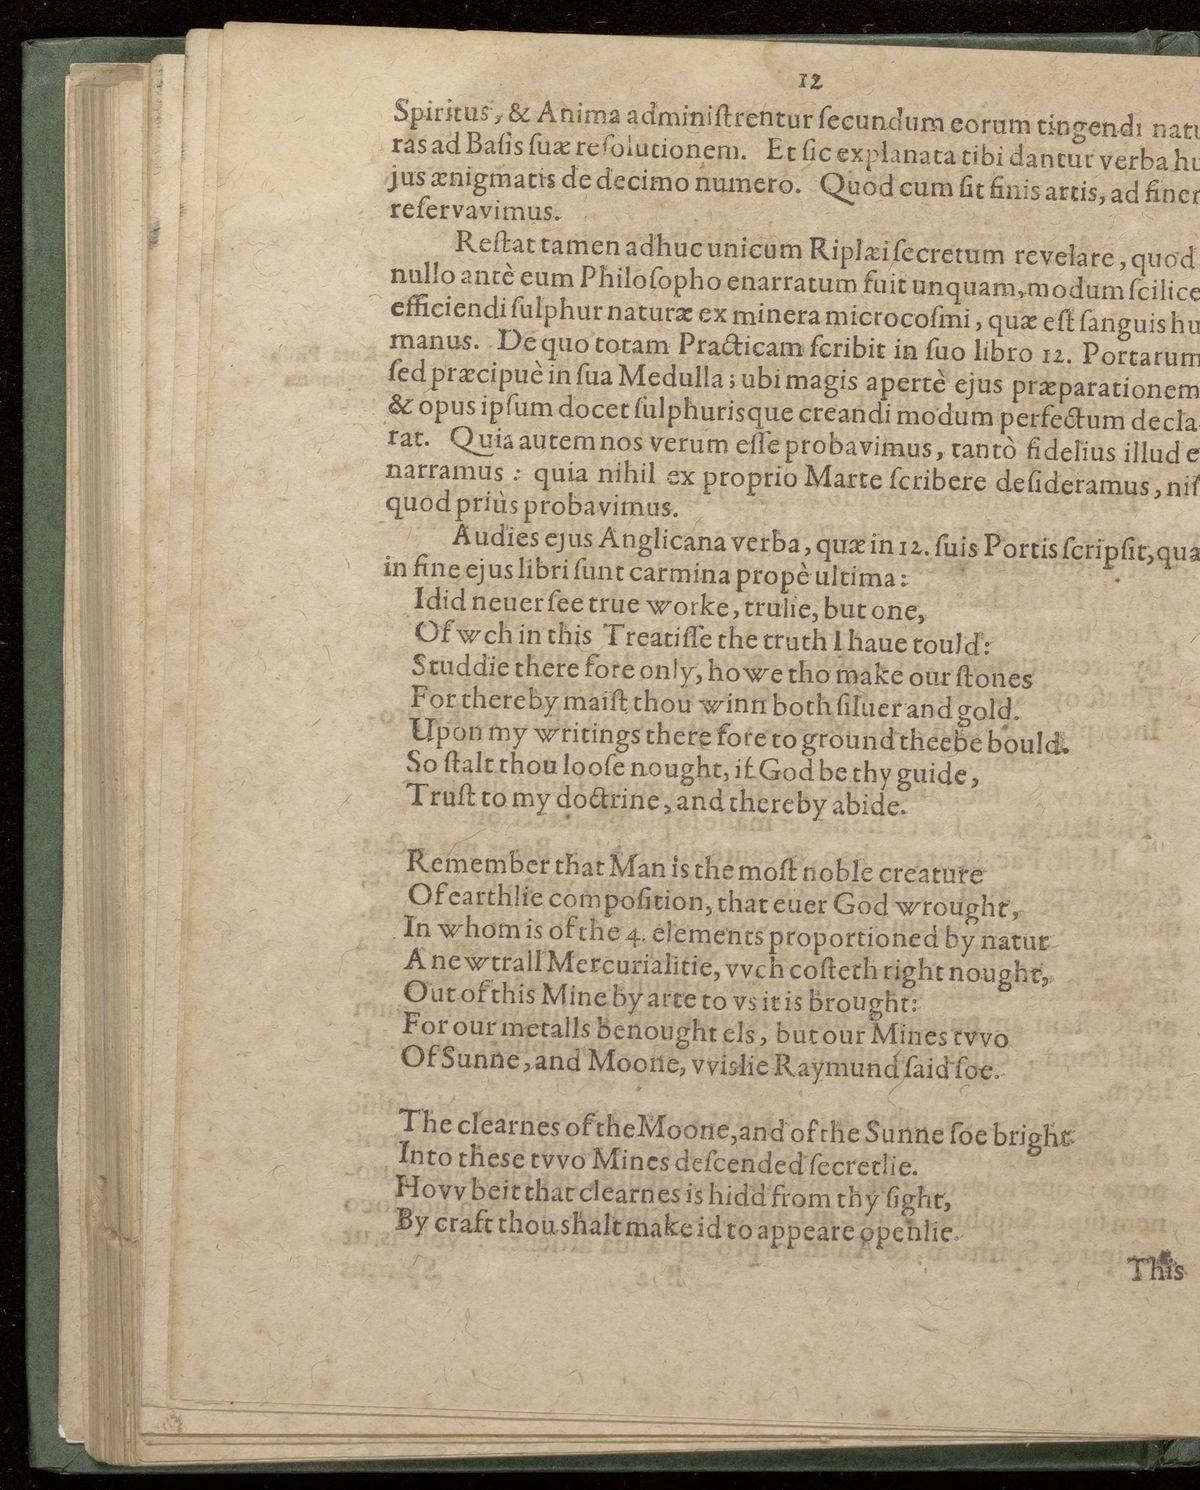 12
Spiritus, & Anima adminiſtrentur ſecundum eorum tingendi natu
ras ad Baſis ſuæ reſolutionem. Et ſic explanata tibi dantur verba hu
jus ænigmatis de decimo numero. Quod cum ſit finis artis, ad finem
reſervavimus.
Reſtat tamen adhuc unicum Riplæi ſecretum revelare, quod
nullo antè eum Philoſopho enarratum fuit unquam, modum ſcilice
efficiendi ſulphur naturæ ex minera microcoſmi, quæ eſt ſanguis hu
manus. De quo totam Practicam ſcribit in ſuo libro 12. Portarum
ſed præcipuè in ſua Medulla; ubi magis apertè ejus præparationem
& opus ipſum docet ſulphurisque creandi modum perfectum decla
rat. Quia autem nos verum eſſe probavimus, tantò fidelius illud e
narramus : quia nihil ex proprio Marte ſcribere deſideramus, niſ
quod priùs probavimus.
Audies ejus Anglicana verba, quæ in 12. ſuis Portis ſcripſit, quæ
in fine ejus libri ſunt carmina propè ultima:
I did neuer ſee true worke, trulie, but one,
Of wch in this Treatiſſe the truth I haue tould:
Studdie there fore only, howe tho make our ſtones
For thereby maiſt thou winn both ſiluer and gold.
Upon my writings there fore to ground theebe bould.
So ſtalt thou looſe nought, if God be thy guide,
Truſt to my doctrine, and thereby abide.
Remember that Man is the moſt noble creature
Of earthlie compoſition, that euer God wrought,
In whom is of the 4. elements proportioned by natur
A newtrall Mercurialitie, vvch coſteth right nought,
Out of this Mine by arte to vs it is brought:
For our metalls benought els, but our Mines tvvo
Of Sunne, and Moone, vvislie Raymund ſaid ſoe.
The clearnes of the Moone, and of the Sunne ſoe bright
Into these tvvo Mines deſcended ſecretlie.
Hovv beit that clearnes is hidd from thy ſight,
By craft thou shalt make id to appeare openlie.
This